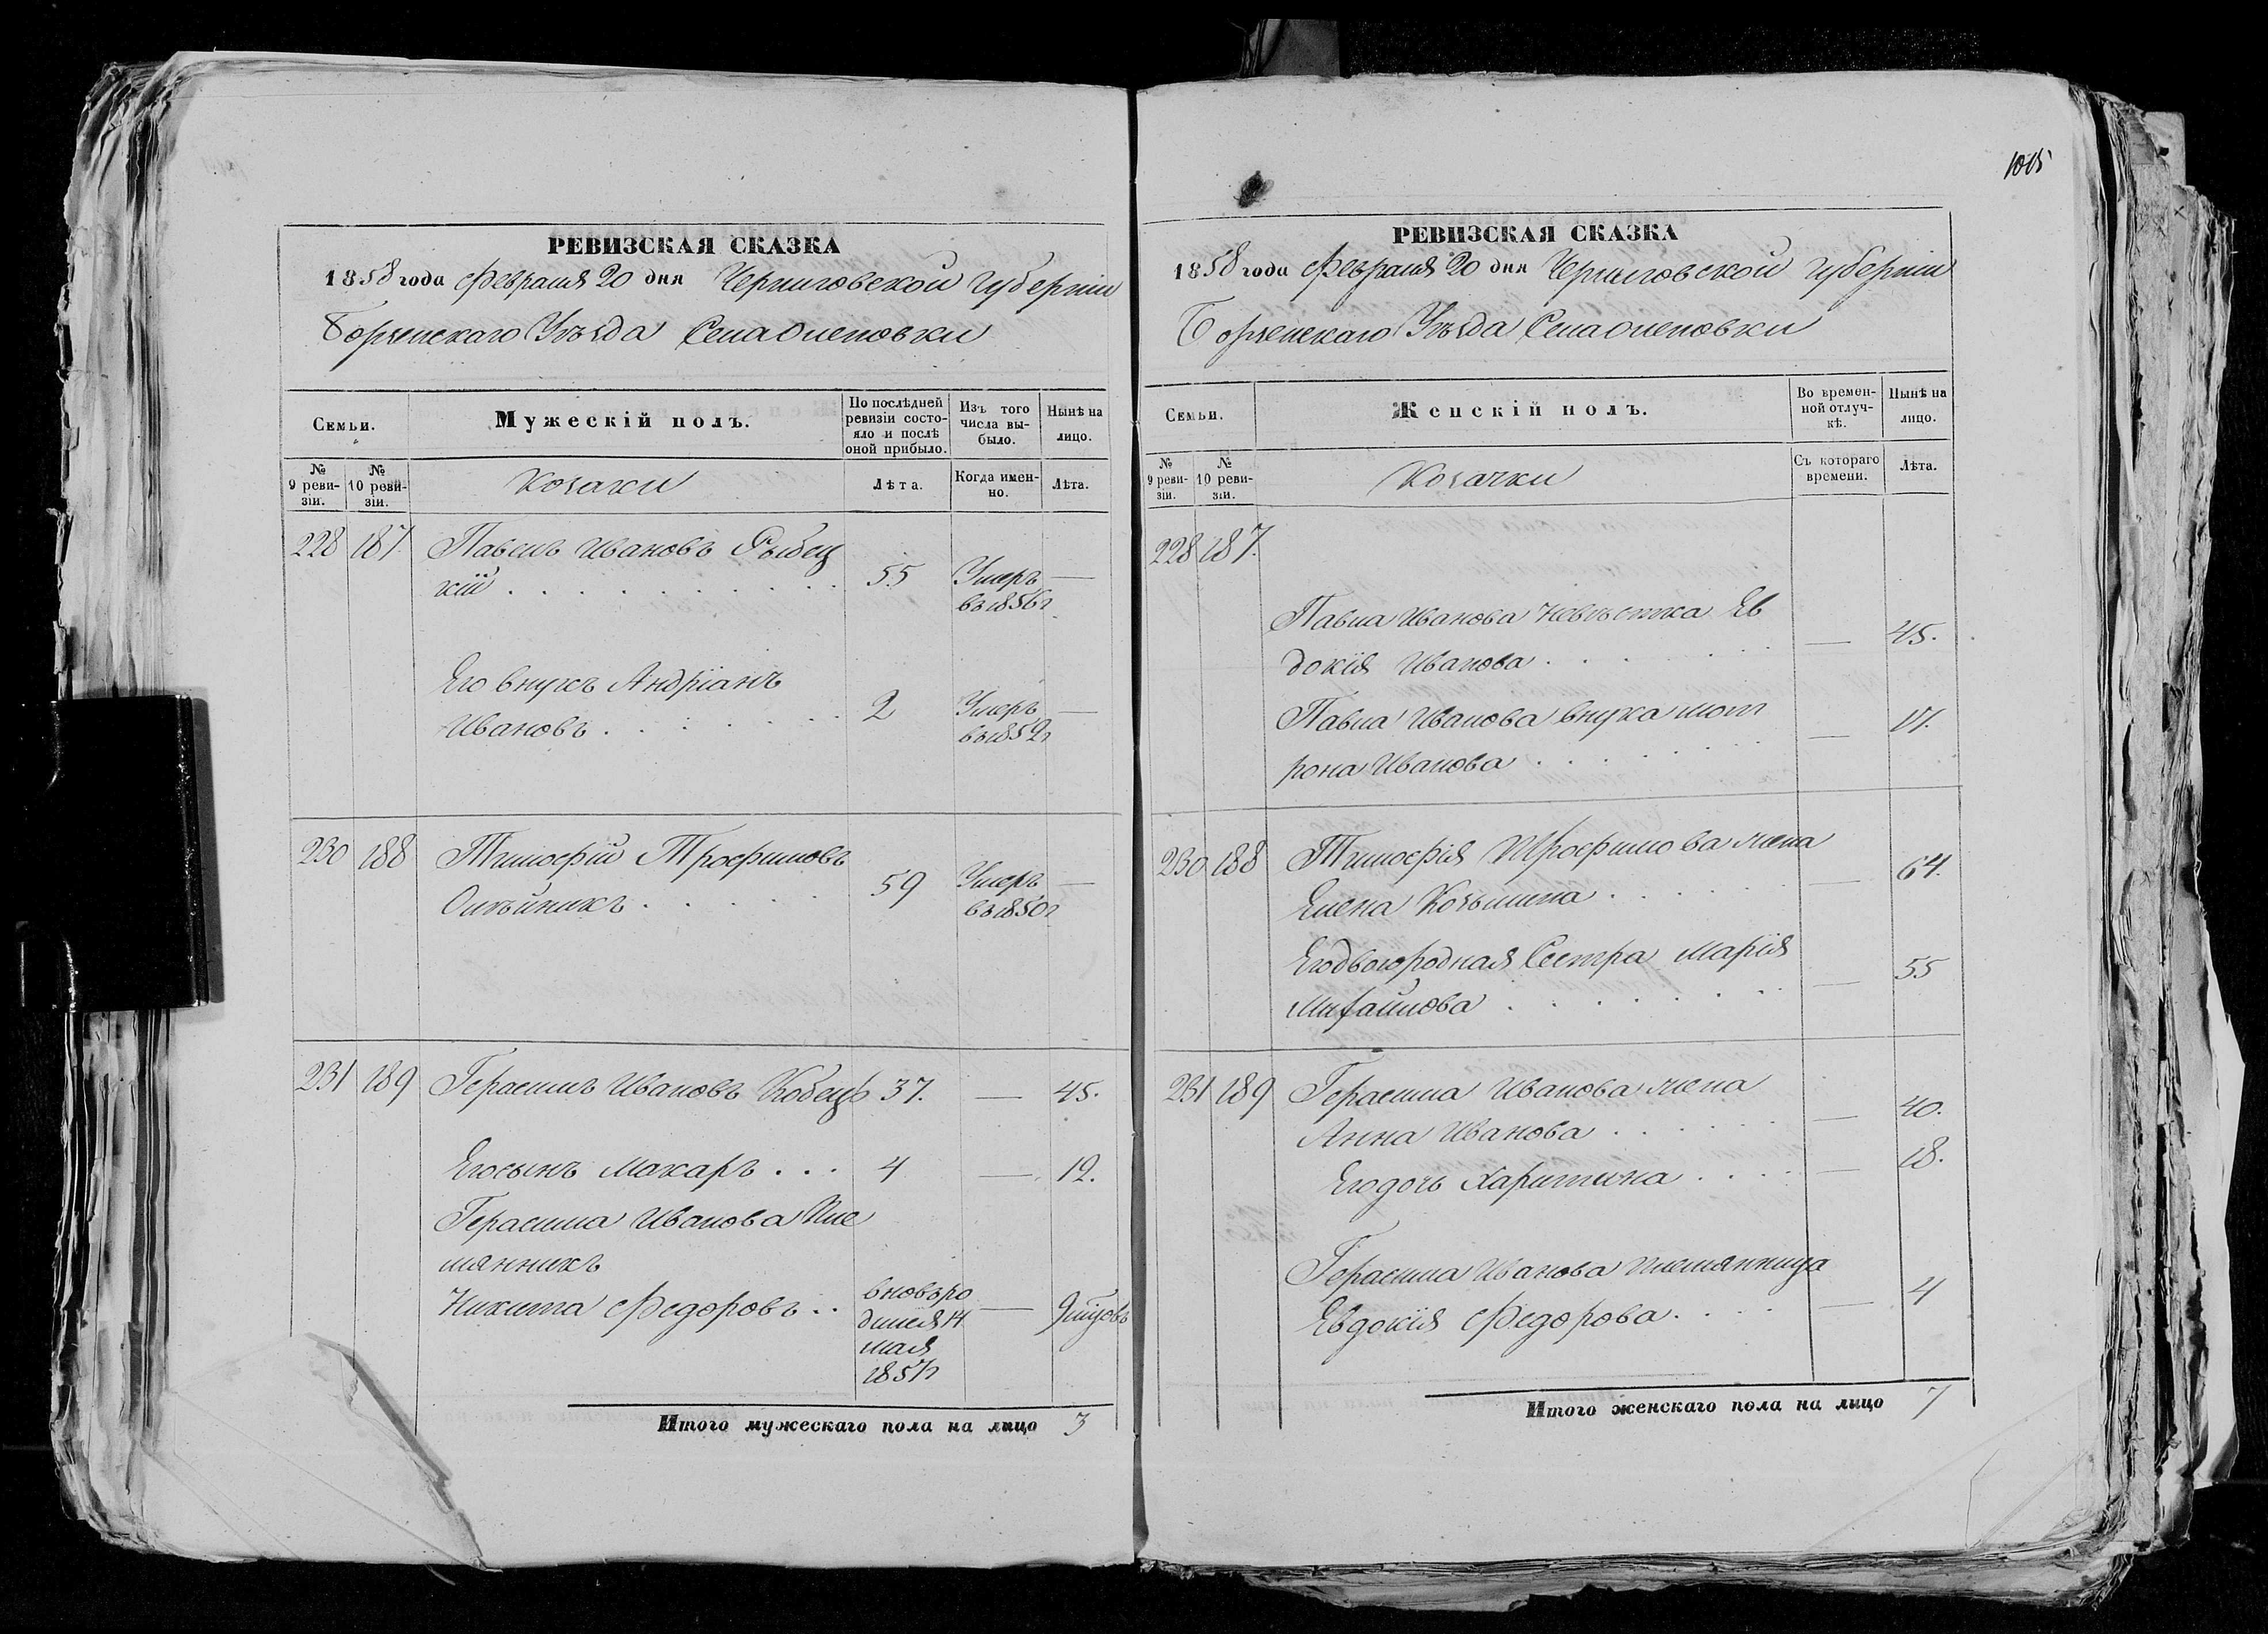 РЕВИЗСКАЯ СКАЗКА
1858 года Февраля 20 дня Черниговской губерніи
Борзенскаго Уѣзда Села Оленовки
Семьи.
Мужескій полъ.
По послѣдней ревизіи состояло и послѣ оной прибыло.
Изъ того числа выбыло.
Нынѣ на лицо.
№ 9 ревизіи.
№ 10 ревизіи.
Козаки
Лѣта.
Когда именно.
Лѣта.
228 187 Павелъ Ивановъ Рыбец
кій . . . 55 Умеръ —
въ 1856г
Его внукъ Андріанъ
Ивановъ . . . 2 Умеръ —
въ 1852г
230 188 Тимофій Трофимовъ
Олѣйникъ . . . 59 Умеръ —
въ 1850г
231 189 Герасимъ Ивановъ Кобецъ 37. — 45.
Его сынъ Макаръ . . . 4 — 12.
Герасима Иванова Пле
мянникъ
Никита Федоровъ . . вновьро
дился 14
мая
1857г
— 9 міцовъ
Итого мужескаго пола на лицо 3
1015
РЕВИЗСКАЯ СКАЗКА
1858 года Февраля 20 дня Черниговской губерніи
Борзенскаго Уѣзда Села Оленовки
Семьи.
Женскій полъ.
Во временной отлучкѣ.
Нынѣ на лицо.
№ 9 ревизіи.
№ 10 ревизіи.
Козачки
Съ котораго времени.
Лѣта.
228 187.
Павла Иванова невѣстка Ев
докія Иванова . . . — 45.
Павла Иванова внука Мот
рона Иванова . . . — 17.
230 188 Тимофія Трофимова жена
Елена Козьмина . . . — 64.
Его двоюродная Сестра Марія
Михайлова . . . — 55
231 189 Герасима Иванова жена
Анна Иванова . . . — 40.
Его дочь Харитина . . . — 18.
Герасима Иванова племянница
Евдокія Федорова . . . — 4
Итого женскаго пола на лицо 7